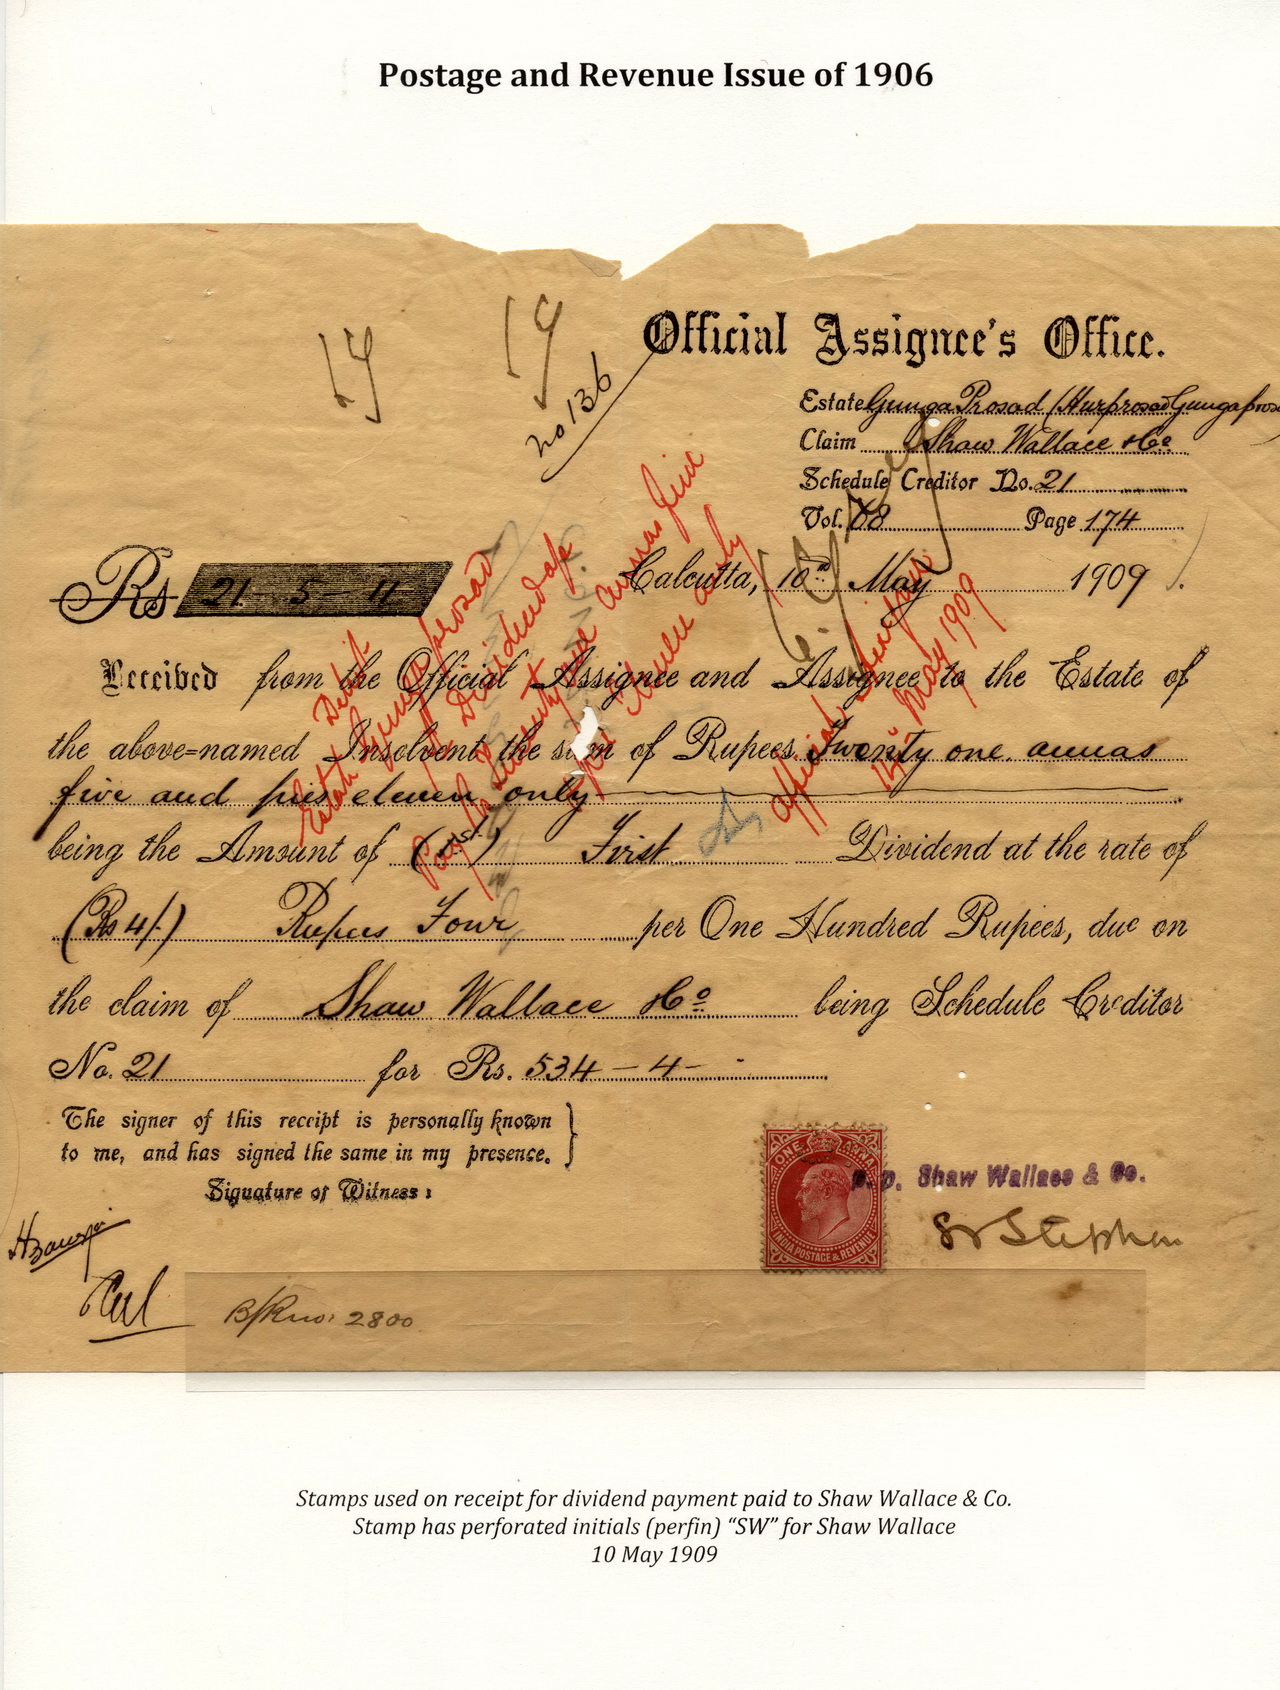 Postage and Revenue Issue of 1906
Official Assignee's Office.
no 136
Estate Gunga Prosad (Hurprosad Gungapros
Claim Shaw Wallace & Co.
Schedule Creditor No. 21
Vol. 68 Page 174
Rs 21-5-11
Calcutta, 10th May 1909
Received from the Official Assignee and Assignee to the Estate of
the above=named Insolvent the sum of Rupees Twenty one annas
five and pies eleven only
being the Amount of (1st) First Dividend at the rate of
(Rs 4/-) Rupees Four per One Hundred Rupees, due on
the claim of Shaw Wallace & Co being Schedule Creditor
No. 21 for Rs. 534-4-
Debit
Estate Gunga prosad
Dividend
Pay Rs Twenty one annas five
only
Official Assignee
May 1909
The signer of this receipt is personally known
to me, and has signed the same in my presence.
Signature of Witness:
ONE ANNA
INDIA POSTAGE & REVENUE
p. p. Shaw Wallace & Co.
Stephen
B/R no: 2800
Stamps used on receipt for dividend payment paid to Shaw Wallace & Co.
Stamp has perforated initials (perfin) “SW” for Shaw Wallace
10 May 1909